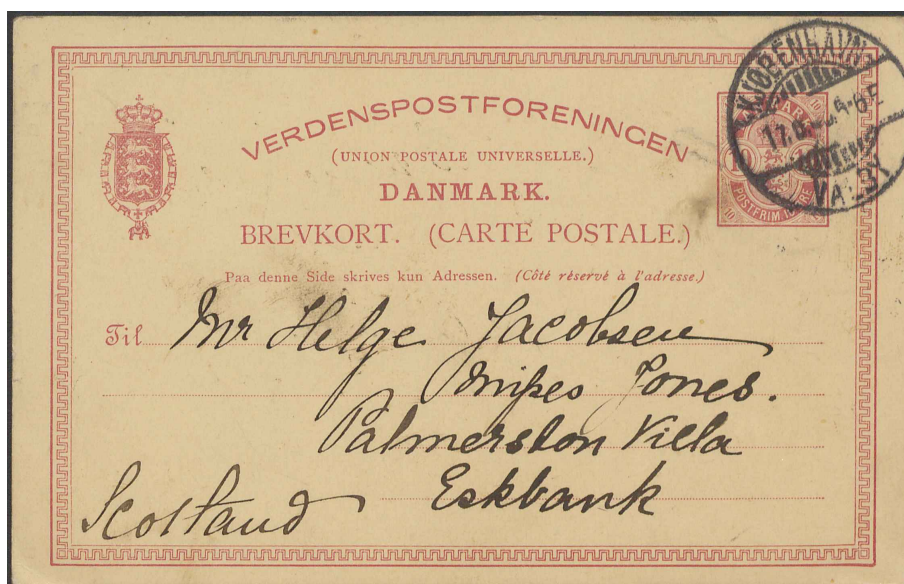 VERDENSPOSTFORENINGEN
(UNION POSTALE UNIVERSELLE.)
DANMARK.
BREVKORT. (CARTE POSTALE.)
Paa denne Side skrives kun Adressen. (Côté réservé à l'adresse.)
Til Mr Helge Jacobsen
Jones.
Palmerston Villa
Eskbank
Scotland
KJØBENHAVN
VALBY
POSTFRIM 10 ØRE
10